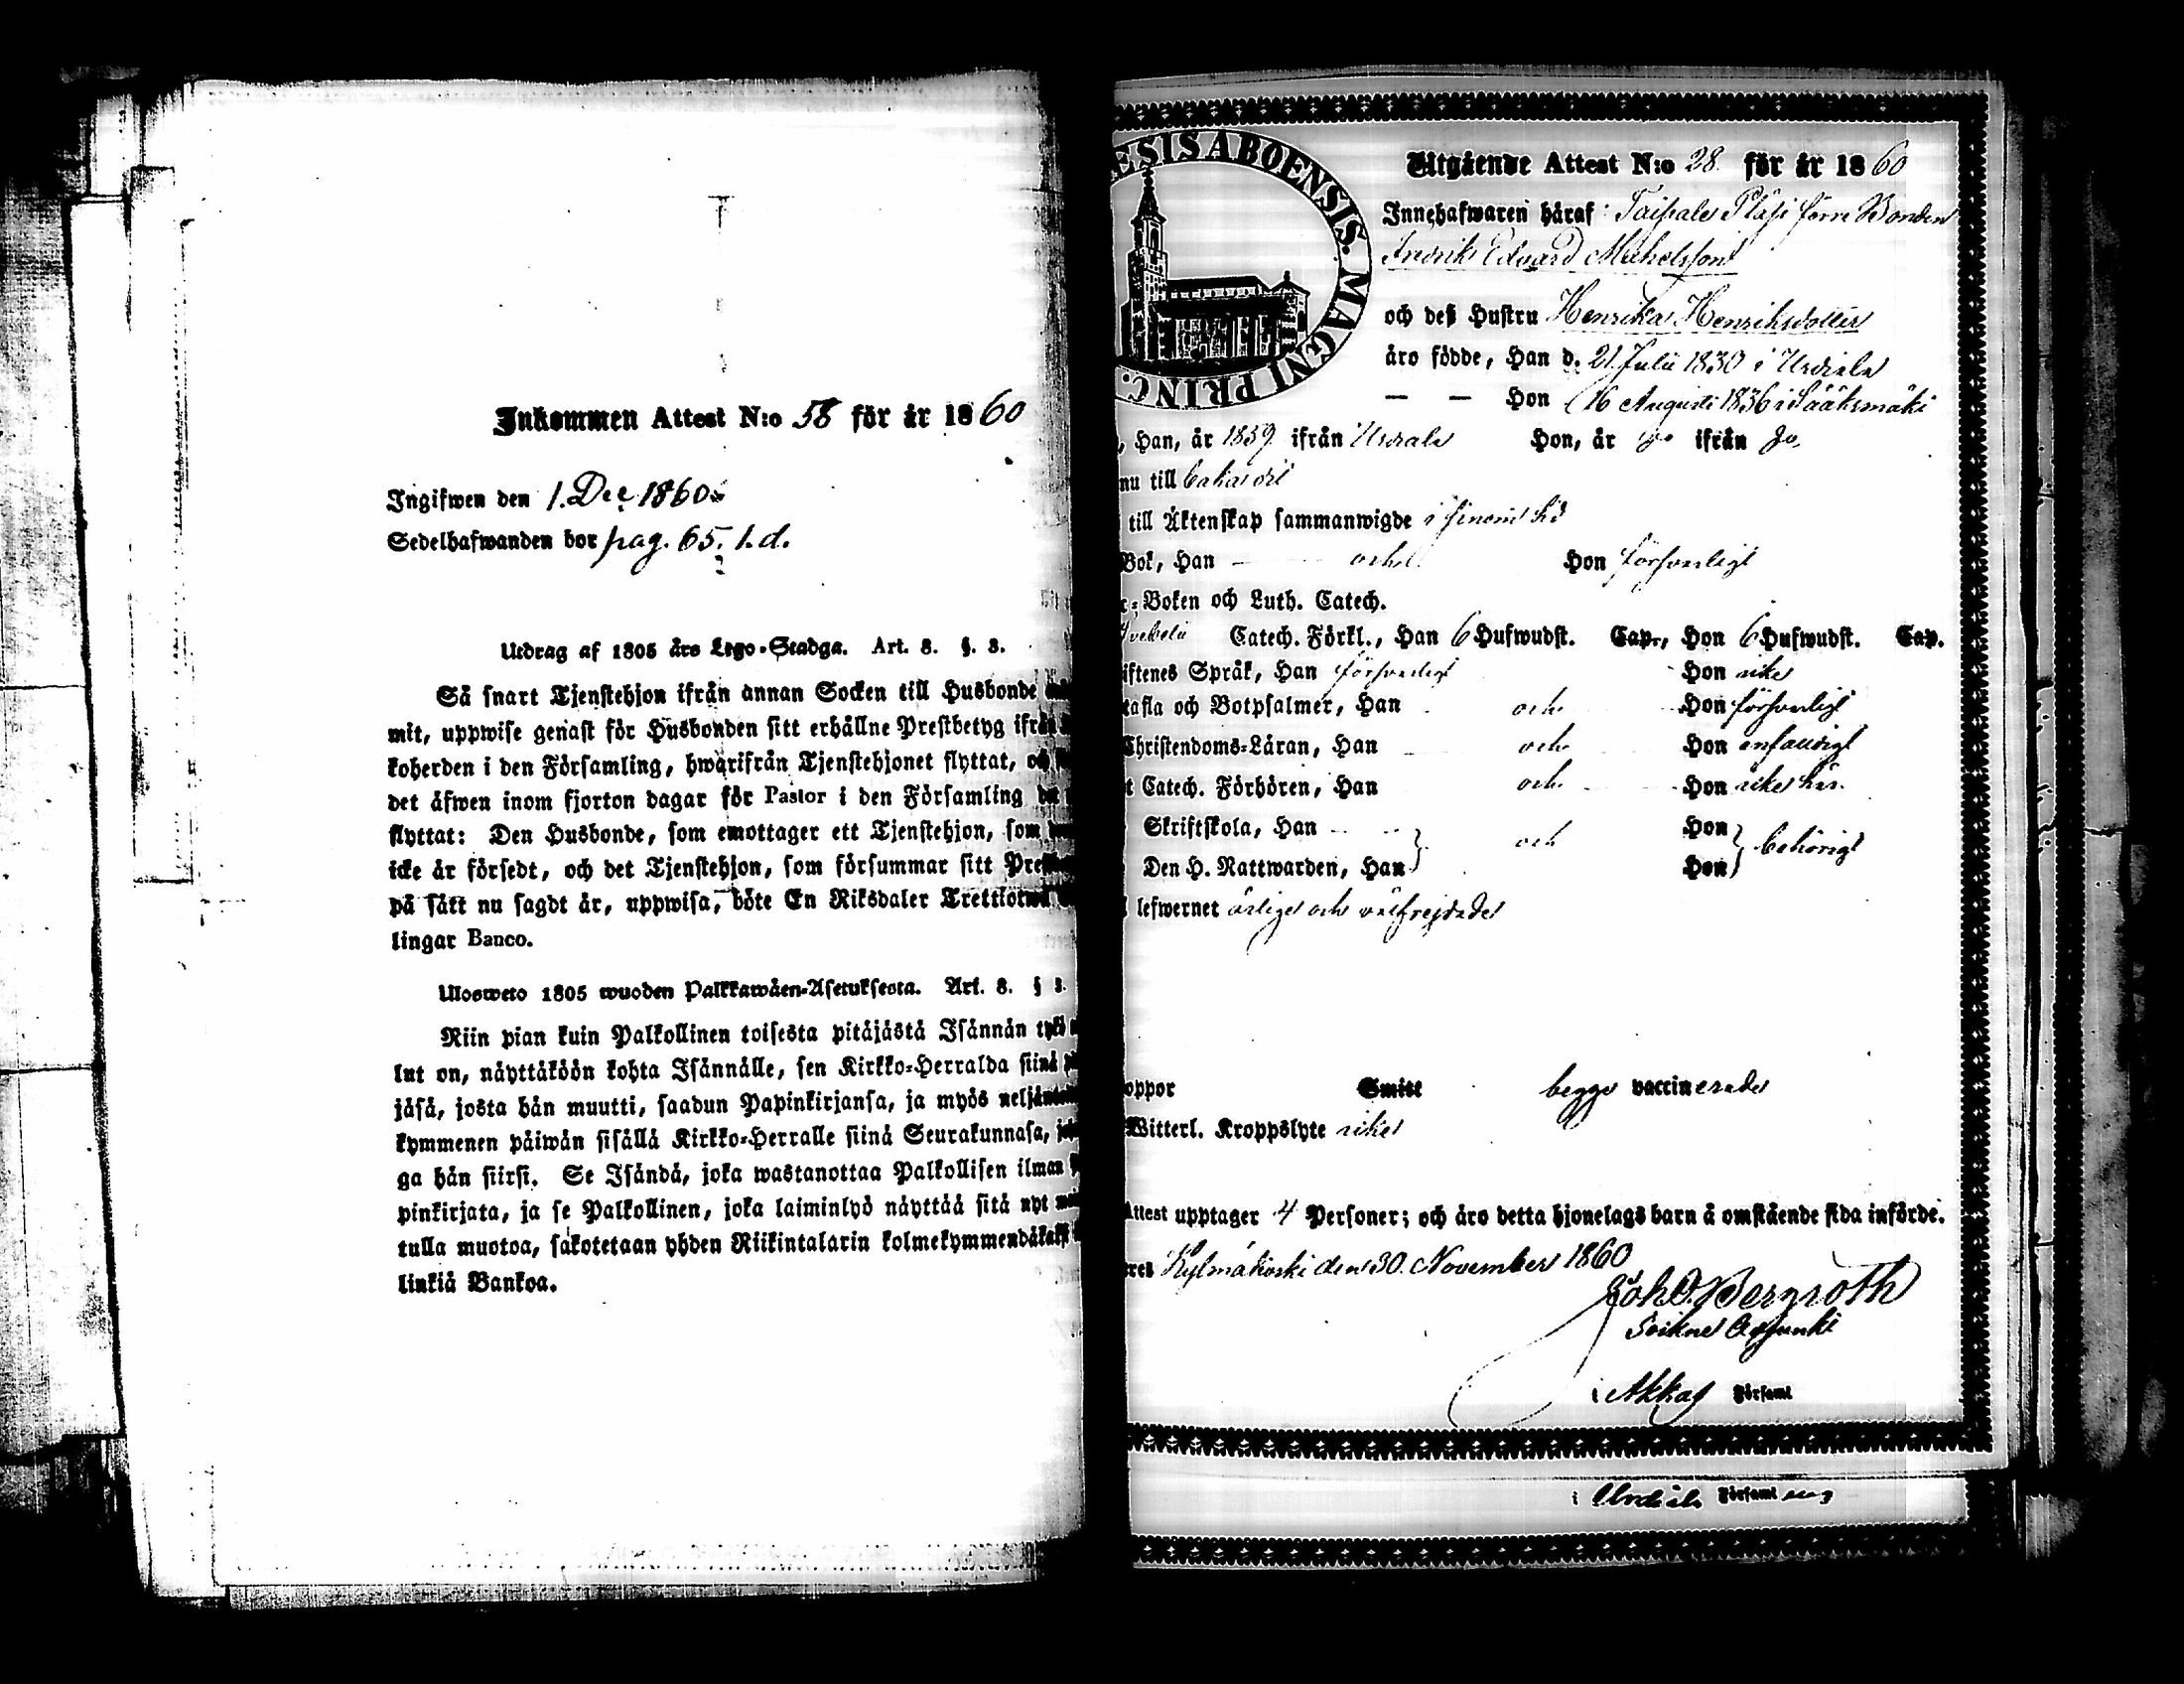 Inkommen Attest N:o 58 för år 1860
Ingifwen den 1. Dec 1860.
Sedelhafwanden bor pag. 65. 1. d.
Utdrag af 1805 års Lego-Stadga. Art. 8. §. 3.
Så snart Tjenstehjon ifrån annan Socken till Husbonde
mit, uppwise genast för Husbonden sitt erhållne Prestbetyg ifrån
koherden i den Församling, hwarifrån Tjenstehjonet flyttat, och
det äfwen inom fjorton dagar för Pastor i den Församling
flyttat: Den Husbonde, som emottager ett Tjenstehjon, som
icke är försedt, och det Tjenstehjon, som försummar sitt
på sätt nu sagdt är, uppwisa, böte En Riksdaler Trettiotwå
lingar Banco.
Ulosweto 1805 wuoden Palkkawäen-Asetuksesta. Art. 8. § 3.
Niin pian kuin Palkollinen toisesta pitäjästä Isännän työ
lut on, näyttäköön kohta Isännälle, sen Kirkko-Herralda siinä
jäsä, josta hän muutti, saadun Papinkirjansa, ja myös
kymmenen päiwän sisällä Kirkko-Herralle siinä Seurakunnasa,
ga hän siirsi. Se Isändä, joka wastanottaa Palkollisen ilman
pinkirjata, ja se Palkollinen, joka laiminlyö näyttää sitä nyt
tulla muotoa, sakotetaan yhden Riikintalarin
linkiä Bankoa.
ESIS ABOENSIS. MAGNI PRINC.
Utgående Attest N:o 28 för år 1860
Innehafwaren häraf: Taipale Pläsi förre Bonden
Fredrik Edvard Michelsson
och deß Hustru Henrika Henriksdotter
äro födde, Han d. 21 Julii 1830 i Urdiala
— — Hon 16 Augusti 1836 i Sääksmäki
, Han, år 1859 ifrån Urdiala Hon, år do ifrån do
nu till
till Äktenskap sammanwigde i sinom tid
Bok, Han — och Hon försvarligt
-Boken och Luth. Catech.
Svebelii Catech. Förkl., Han 6 Hufwudst. Cap., Hon 6 Hufwudst. Cap.
iftenes Språk, Han försvarligt Hon icke
tafla och Botpsalmer, Han och Hon försvarligt
Christendoms-Läran, Han och Hon enfaldigt
t Catech. Förhören, Han och Hon icke här.
Skriftskola, Han och Hon behörigt
Den H. Nattwarden, Han Hon
lefwernet ärlige och välfrejdade
oppor Smitt begge vaccinerade
Witterl. Kroppslyte icke
Attest upptager 4 Personer; och äro detta hjonelags barn å omstående sida införde.
Kylmäkoski den 30. November 1860
Joh. O. Bergroth
Sockne Adjunkt
i Akkas Församl
i Urdiala Församl